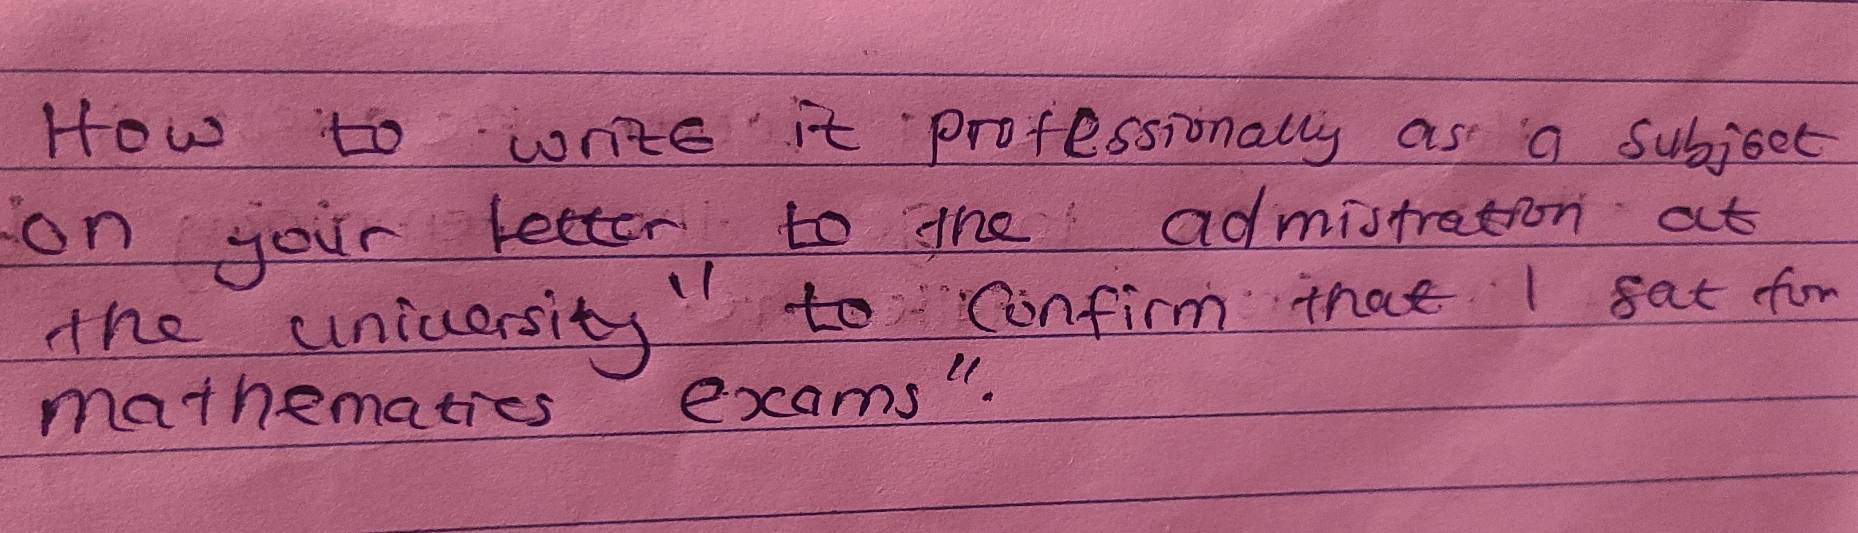 How to write it professionally as a subject
on your letter to the admistration at
the university" to Confirm that I sat for
mathematics exams".